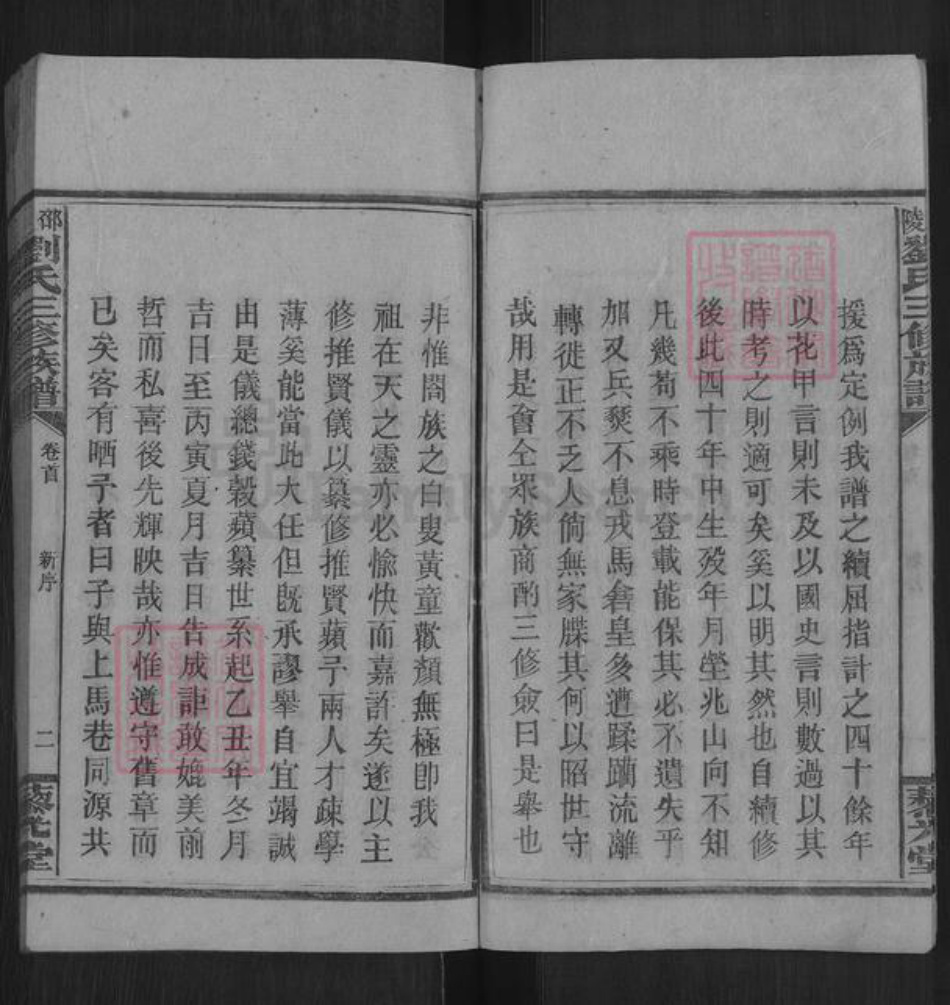 援爲定例我譜之續屈指計之四十餘年
以花甲言則未及以國史言則數過以其
時考之則適可矣奚以明其然也自續修
後此四十年中生殁年月塋兆山向不知
凡幾苟不乘時登載能保其必不遺失乎
加又兵燹不息戎馬倉皇多遭蹂躪流離
轉徙正不乏人倘無家牒其何以昭世守
哉用是會仝衆族商酌三修僉曰是舉也
邵
劉氏三修族譜
卷首
新序
二
非惟閤族之白叟黃童歡顏無極卽我
祖在天之靈亦必愉快而嘉許矣遂以主
修推賢儀以纂修推賢蘋予兩人才疎學
薄奚能當此大任但旣承謬舉自宜竭誠
由是儀總錢穀蘋纂世系起乙丑年冬月
吉日至丙寅夏月吉日告成詎敢媲美前
哲而私喜後先輝映哉亦惟遵守舊章而
已矣客有哂予者曰子與上馬巷同源共
陵
劉氏三修族譜
FamilySearch